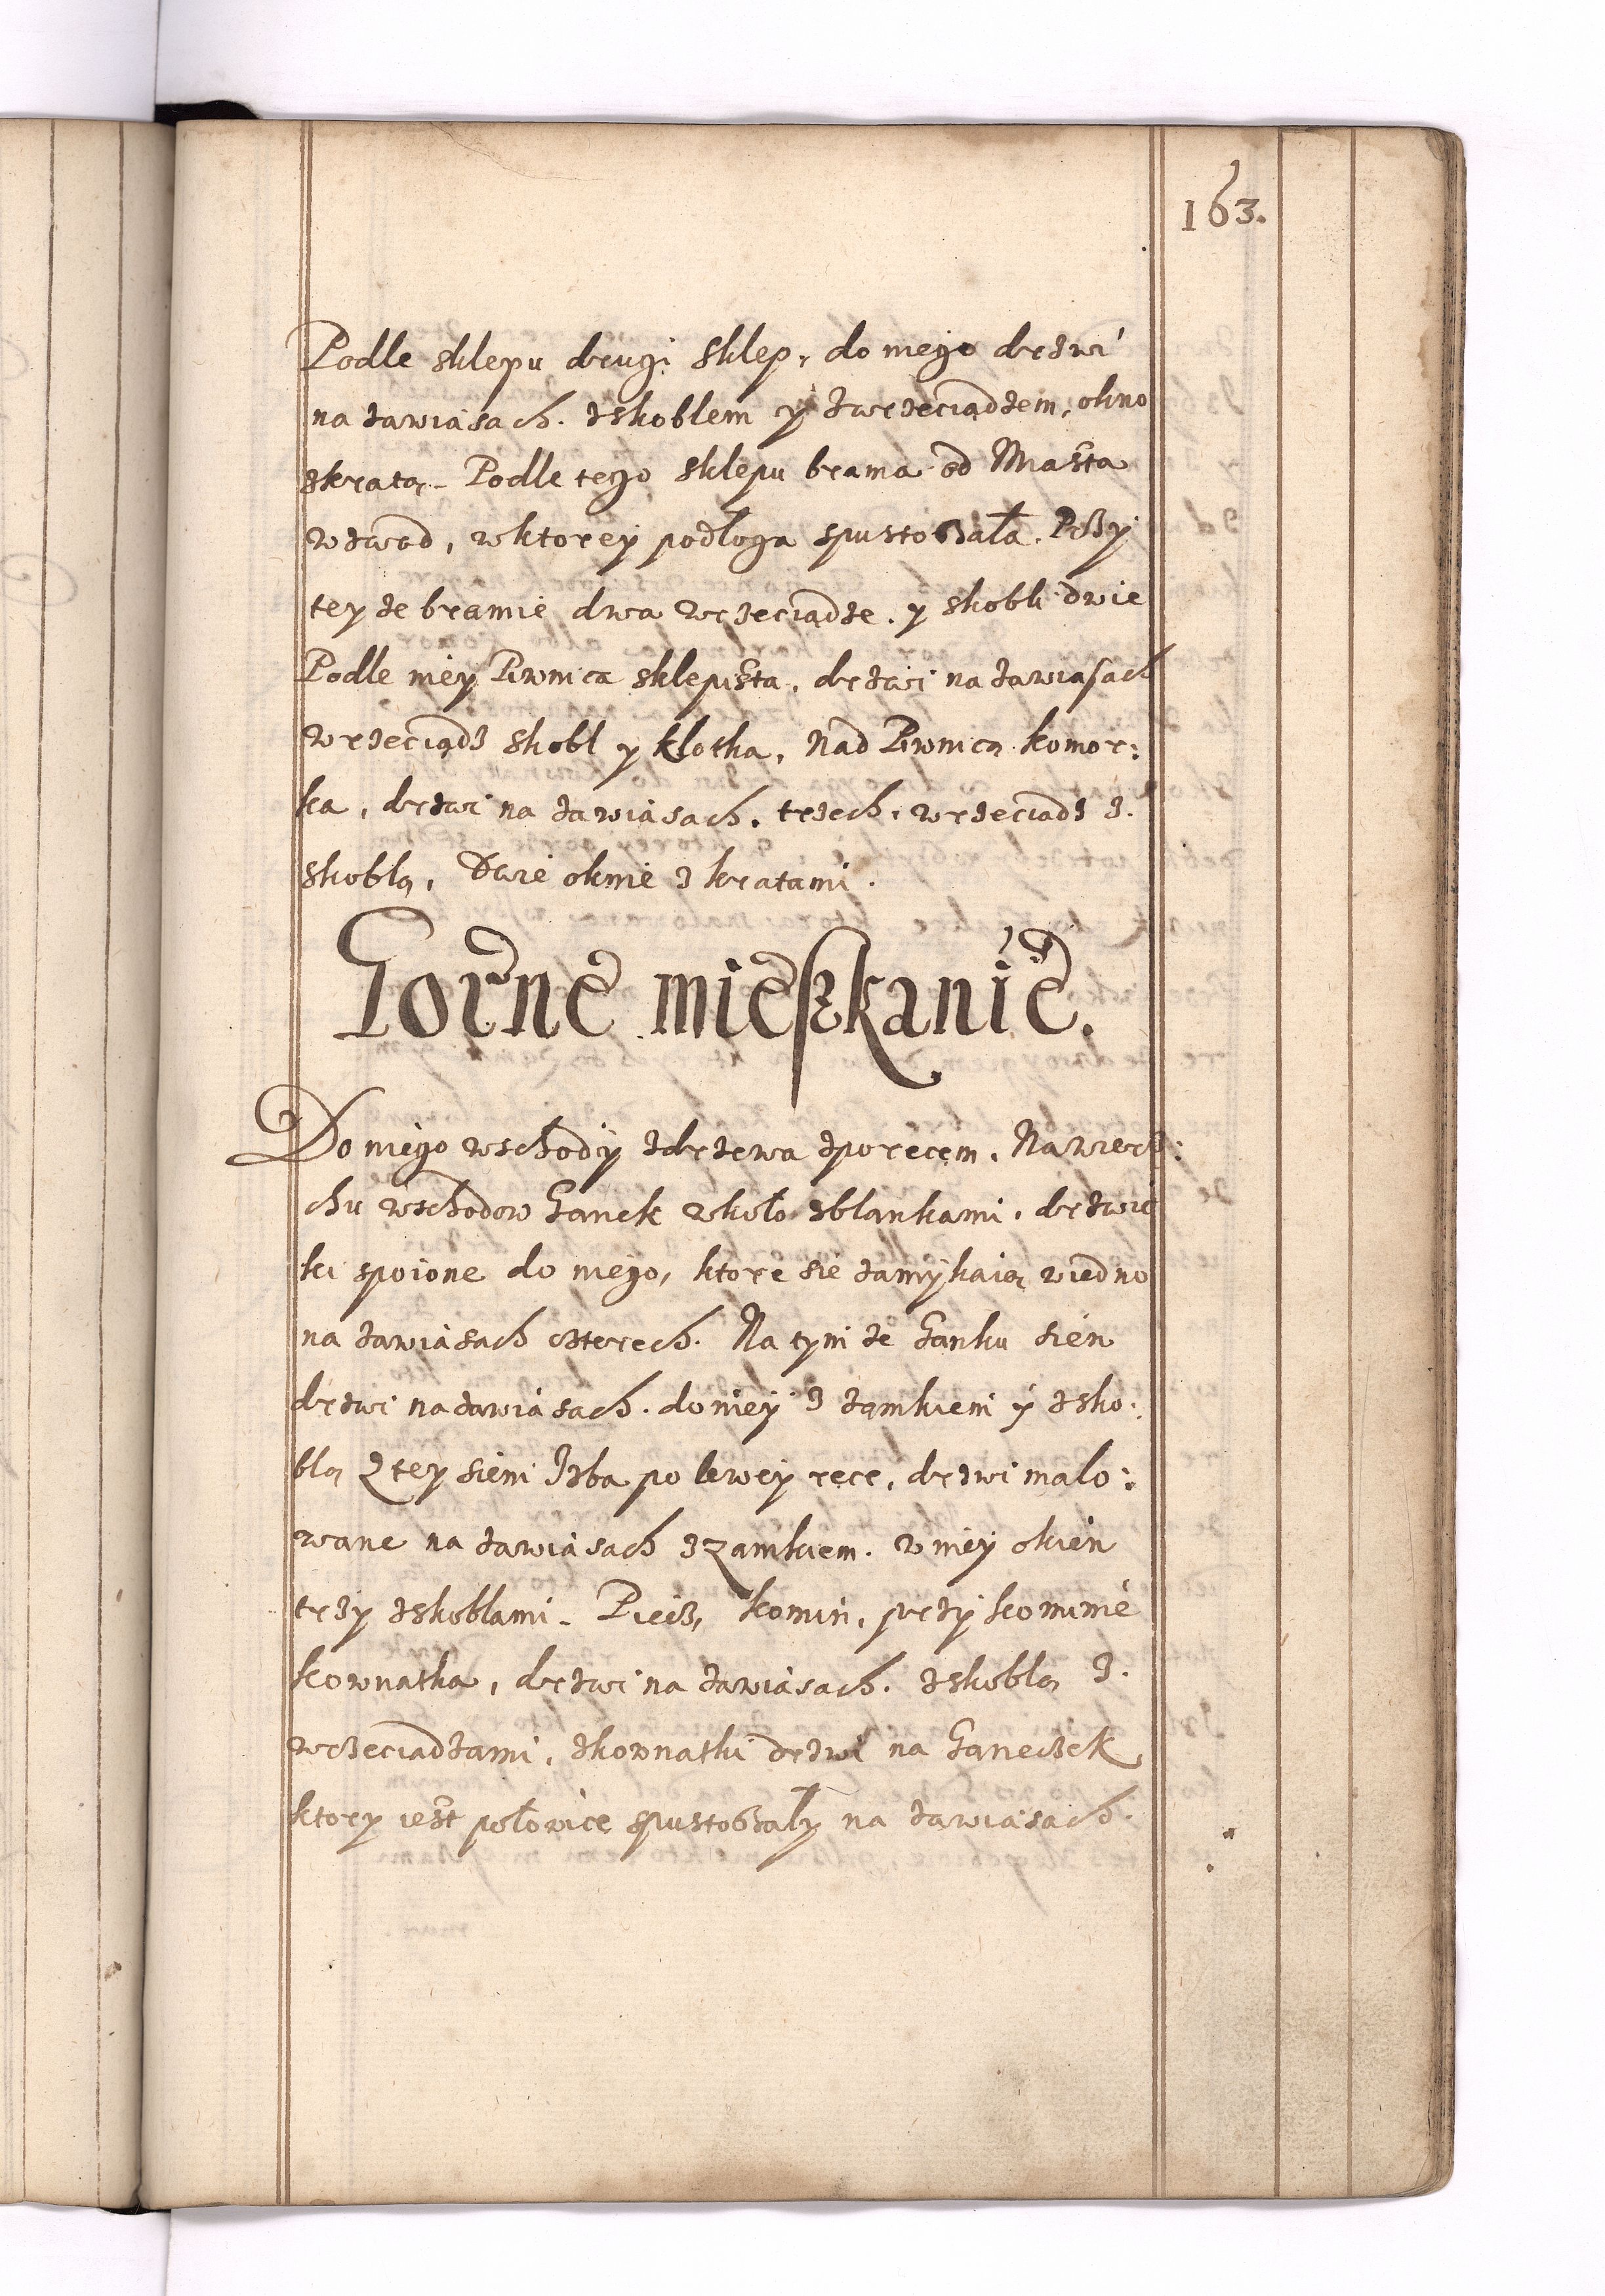 163.
Podle sklepu drugi sklep, do niego drzwi
na zawiasach. zskoblem y zwrzeciądzem, okno
zkratą. Podle tego sklepu brama od Miasta
wzwod, wktorey podłoga spustoszała. Przy
tey ze bramie dwa wrzeciądze. y skobli dwie
Podle niey Piwnica sklepista, drzwi na zawiasach
wrzeciądz skobl y klotka, Nad Piwnicą komor:
ka, drzwi na zawiasach, trzech, wrzeciądz z.
skoblą, Dwie oknie z kratami.
Gorne mieszkanie.
Do niego wschody zdrzewa zporęcem, Nawierz:
chu wschodow Ganek wkoło zblankami, drzwic
ki spoione do niego, ktore sie zamykaią wiedno
na zawiasach czterech. Na tym ze Ganku sien
drzwi nazawiasach. doniey z zamkiem y zsko:
blą Z tey sieni Izba po lewey ręce, drzwi malo:
wane na zawiasach z zamkiem. w niey okien
trzy zskoblami. Piecz, komin, przy kominie
kownatka, drzwi na zawiasach. zskoblą z.
wrzeciadzami, zkownatki drzwi na Ganeczek
ktory iest połowice spustoszały na zawiasach.